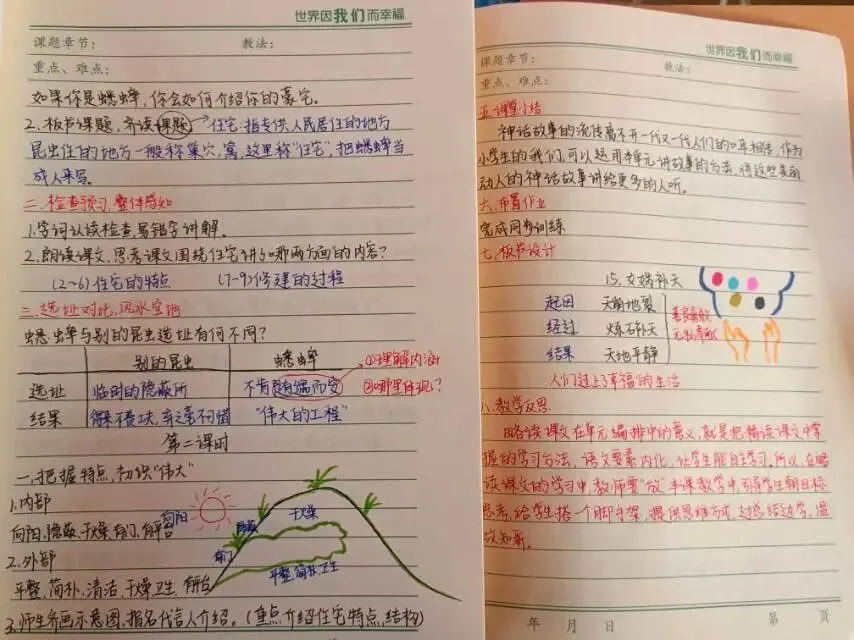 世界因我们而幸福
课题章节：
教法：
重点、难点：
如果你是蟋蟀，你会如何介绍你的豪宅。
2.板书课题，齐读课题→住宅：指专供人民居住的地方
昆虫住的地方一般称巢穴，窝，这里称"住宅"，把蟋蟀当
成人来写。
二、检查预习，整体感知
1.字词认读检查，易错字讲解。
2.朗读课文，思考课文围绕住宅讲了哪两方面的内容？
(2~6)住宅的特点 (7-9)修建的过程
三、选址对比，风水宝地
蟋蟀与别的昆虫选址有何不同？
别的昆虫 蟋蟀
①理解内涵
选址 临时的隐蔽所 不肯随遇而安 ②哪里体现？
结果 得来不费工夫，弃之毫不可惜 "伟大的工程"
第二课时
一、把握特点，初识"伟大"
1.内部
向阳、隐蔽、干燥、有门、有平台
向阳
隐蔽
干燥
有门
2.外部
平整、简朴、清洁、干燥、卫生
平整、简朴、卫生
3.师生齐画示意图，指名代言人介绍。（重点介绍住宅特点，结构）
世界因我们而幸福
课题章节：
教法：
重点、难点：
五、课堂小结
神话故事的流传离不开一代又一代人们的口耳相传，作为
小学生的我们，可以运用本单元讲故事的方法，将这些美丽
动人的神话故事讲给更多的人听。
六、布置作业
完成同步训练
七、板书设计
15.女娲补天
起因 天崩地裂
经过 炼石补天
结果 天地平静
善良勇敢
无私奉献
人们过上了幸福的生活
八、教学反思
略读课文在单元编排中的意义，就是把精读课文中掌
握的学习方法、语文要素内化，让学生能自主学习，所以，在略
读课文的学习中，教师要"放"手课教学中，引导学生朝目标
思考，给学生搭一个脚手架，提供思维方式，边总结边学，温
故知新。
年 月 日 第 页